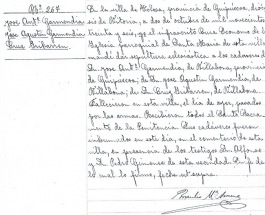 Nº. 267
Jose Antº. Garmendia
Jose Agustin Garmendia
Cruz Eribarren.
En la villa de Tolosa, provincia de Guipuzcoa, dióce-
sis de Vitoria, a dos de octubre de mil novecientos
treinta y seis, yo el infrascrito Cura Ecónomo de la
Iglesia parroquial de Santa Maria de esta villa
mandé dar sepultura eclesiástica a los cadáveres
D. Jose Antº. Garmendia, de Villabona, provincia
de Guipuzcoa; de D. Jose Agustin Garmendia, de
Villabona; de D. Cruz Eribarren, de Villabona
Fallecieron en esta villa, el día de ayer, pasados
por las armas. Recibieron todos el Santo Sacra-
mento de la Penitencia. Sus cadáveres fueron
inhumados en este día, en el cementerio de esta
villa, en presencia de los testigos D. Alfonso
y D. Pedro Gimeno de esta vecindad. Por fe de
lo cual lo firmo, fecha ut supra.